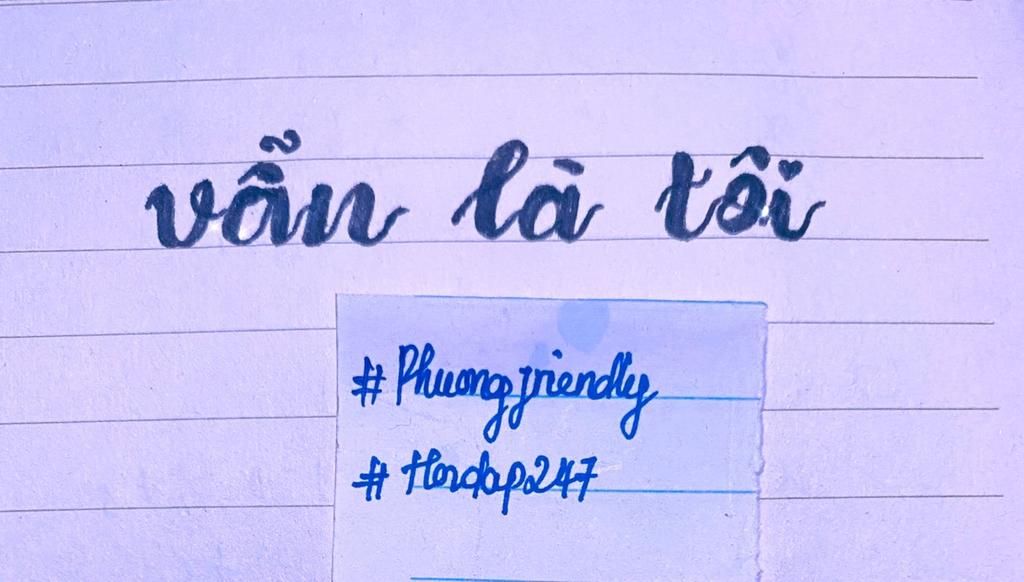 vẫn là tôi
#Phuongfriendly
#Hoidap247